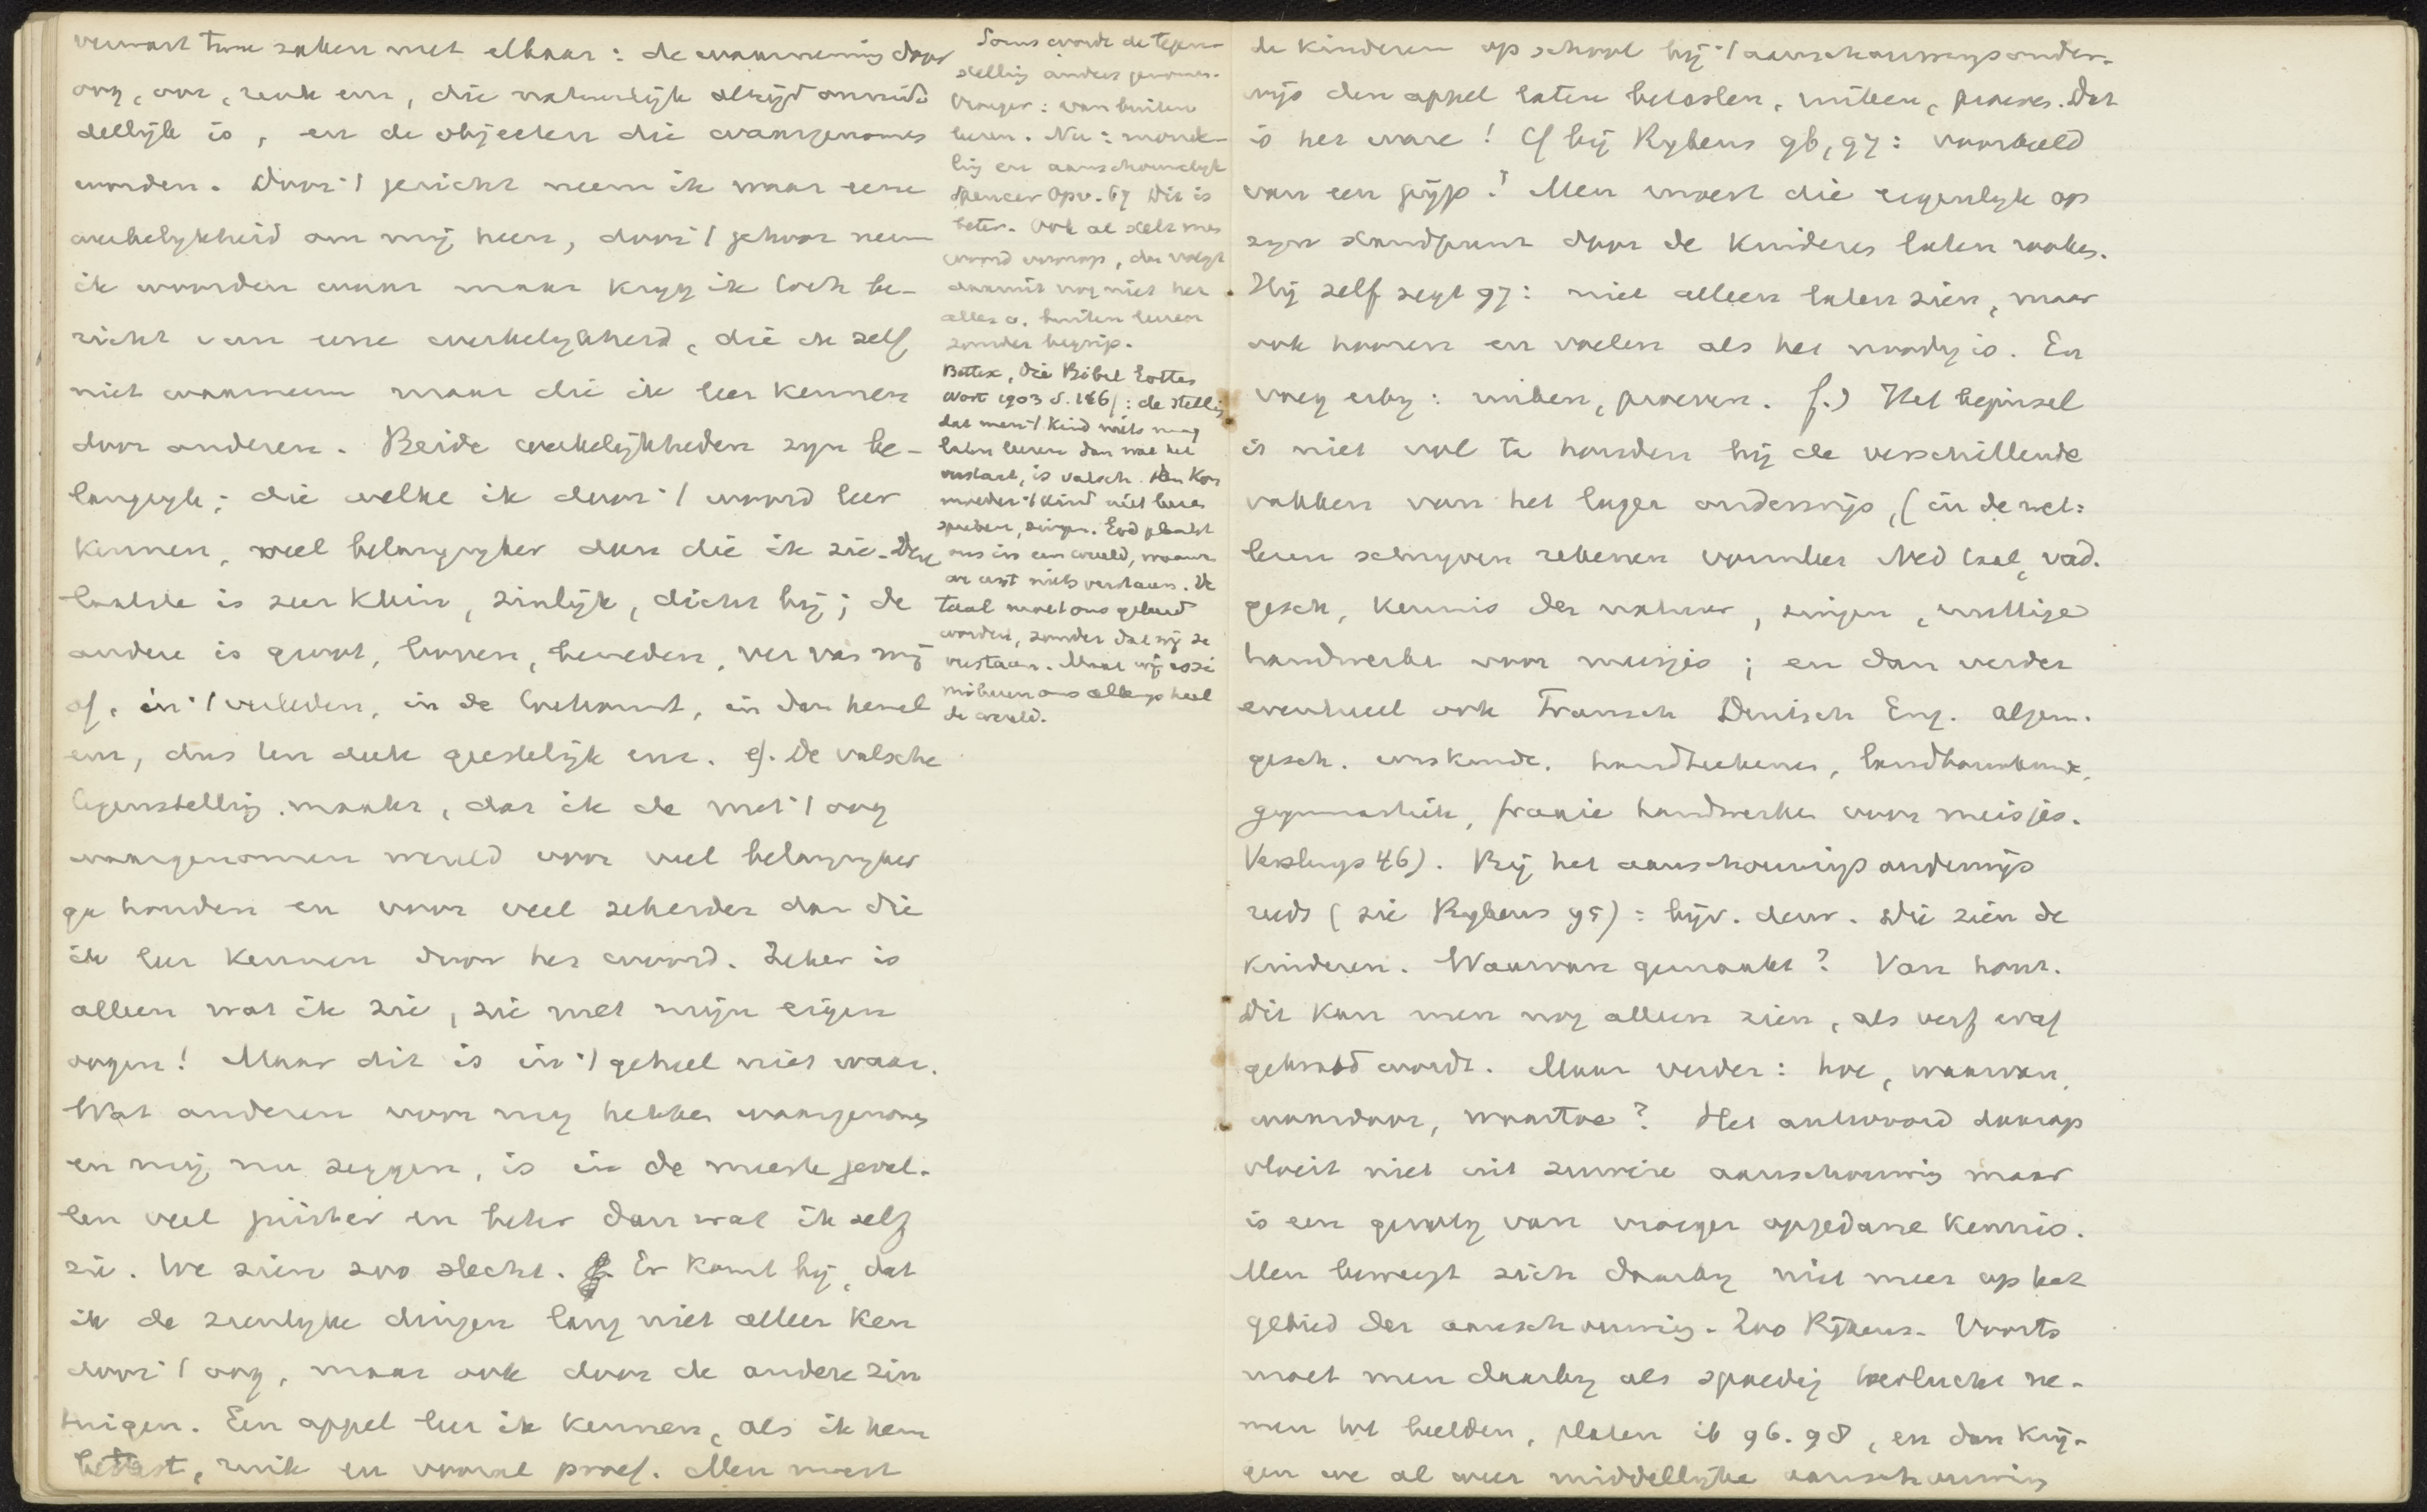 verwart twee zaken met elkaar: de waarneming door
oog, oor, reuk enz, die natuurlijk altijd onmid-
dellijk is, en de objecten die waargenomen
worden. Door 't gezicht neem ik waar eene
werkelykheid om mij heen, door 't gehoor neem
ik woorden waar maar kryg ik toch be-
richt van eene werkelykheid, die ik zelf
niet waarneem maar die ik leer kennen
door anderen. Beide werkelijkheden zyn be-
langryk; die welke ik door 't woord leer
kennen, veel belangryker dan die ik zie. Deze
laatste is zeer klein, zinlijk, dicht bij; de
andere is groot, boven, beneden, ver van mij
af, in 't verleden, in de toekomst, in den hemel
enz, dus ten deele geestelijk enz. e). De valsche
tegenstelling maakt, dat ik de met 't oog
waargenomen wereld voor veel belangryker
ga houden en voor veel zekerder dan die
ik leer kennen door het woord. Zeker is
alleen wat ik zie, zie met mijn eigen
oogen! Maar dit is in 't geheel niet waar.
Wat anderen voor my hebben waargenomen
en mij nu zeggen, is in de meeste geval-
len veel juister en beter dan wat ik zelf
zie. We zien zoo slecht. Er komt bij, dat
ik de zienlyke dingen lang niet alleen ken
door 't oog, maar ook door de andere zin
tuigen. Een appel leer ik kennen, als ik hem
betast, ruik en vooral proef. Men moest
Soms wordt de tegen-
stelling anders genomen.
Vroeger: van buiten
leeren. Nu: monde-
ling en aanschouwelyk
Spencer Opv. 67 Dit is
beter. Ook al stelt men
woord voorop, dan volgt
daaruit nog niet het
alles v. buiten leeren
zonder begrip.
Bettex, Die Bibel Gottes
Wort 1903 S. 186/: de stelling
dat men 't kind niets mag
laten leeren dan wat het
verstaat, is valsch. Dan kon
moeder 't kind niet leeren
spreken, zingen. God plaatst
ons in een wereld, waarvan
we eerst niets verstaan. De
taal moet ons geleerd
worden, zonder dat wij ze
verstaan. Maar wij assi
mileeren ons allengs heel
de wereld.
de kinderen op school bij 't aanschouwingsonder-
wijs den appel laten betasten, ruiken, proeven. Dat
is het ware! Cf bij Rykens 96, 97: voorbeeld
van een pijp! Men moest die eigenlyk op
zyn standpunt door de kinderen laten rooken.
Hij zelf zegt 97: niet alleen laten zien, maar
ook hooren en voelen als het noodig is. En
voeg erby: ruiken, proeven. f.) Het beginsel
is niet vol te houden bij de verschillende
vakken van het lager onderwijs, (in de wet:
lezen schryven rekenen vormleer Ned taal, vad.
gesch, kennis der natuur, zingen, nuttige
handwerken voor meisjes; en dan verder
eventueel ook Fransch Duitsch Eng. algem.
gesch. wiskunde. handteekenen, landbouwkunde,
gymnastiek, fraaie handwerken voor meisjes.
Versluys 46). Bij het aanschouwings onderwijs
reeds (zie Rykens 95): bijv. deur. Die zien de
kinderen. Waarvan gemaakt? Van hout.
Dit kan men nog alleen zien, als verf eraf
gekrabd wordt. Maar verder: hoe, waarvan,
waardoor, waartoe? Het antwoord daarop
vloeit niet uit zuivere aanschouwing maar
is een gevolg van vroeger opgedane kennis.
Men beweegt zich daarby niet meer op het
gebied der aanschouwing. Zoo Rijkens. Voorts
moet men daarby als spoedig toevlucht ne-
men tot beelden, platen ib 96. 98, en dan krij-
gen we al weer middellijke aanschouwing